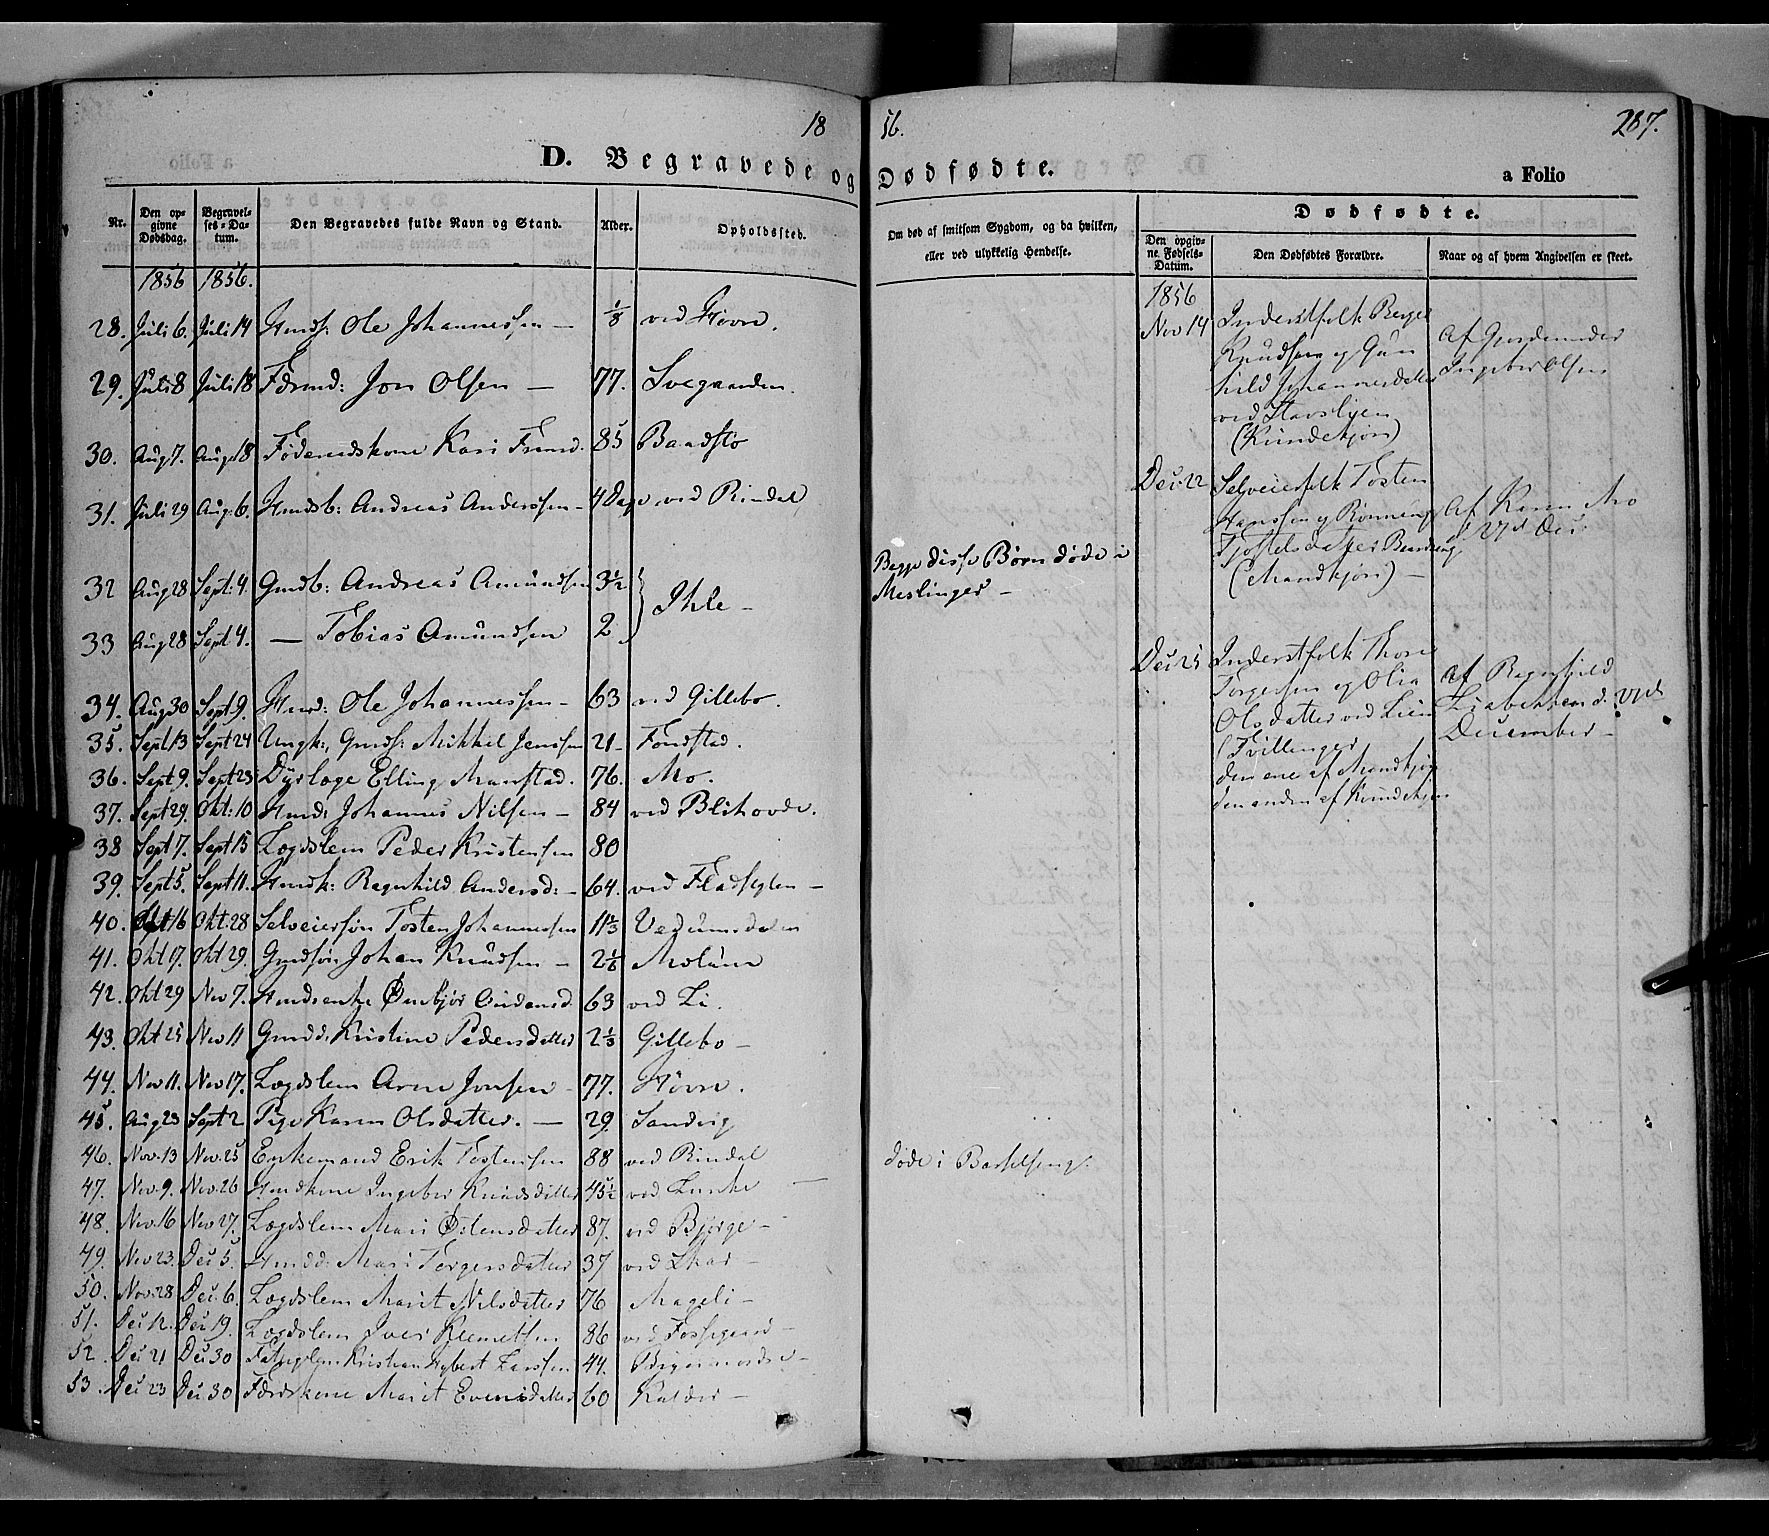 18 56. 287.
D. Begravede og Dødfødte. a Folio
Nr. Den opgivne Dødsdag. Begravelses-Datum. Den Begravedes fulde Navn og Stand. Alder. Opholdssted. Om død af smitsom Sygdom, og da hvilken, eller ved ulykkelig Hendelse.
Dødfødte.
Den opgivne Fødsels-Datum. Den Dødfødtes Forældre. Naar og af hvem Angivelsen er skeet.
1856 1856.
28. Juli 6. Juli 14 Hmds: Ole Johannessen — 1/8 ved Høvre.
29. Juli 8 Juli 18 Førmd: Jon Olsen — 77. Svegaarden.
30. Aug 7. Aug. 18 Føderaadskone Kari 85 Baadstø
31. Juli 29 Aug. 6. Hmdsb: Andreas Anderssen — 4 Dage ved Rindal
32 Aug 28 Sept. 4. Gmdb: Andreas Amundsen 3½ Ihle — Begge disse Børn døde i
Meslinger —
33 Aug 28 Sept. 4. — Tobias Amundsen 2
34. Aug 30 Sept 9. Hmd: Ole Johannessen — 63 ved Gillebo.
35. Sept 13 Sept 24 Ungk., Gmds: Mikkel Jenssen 21 — Fonstad.
36. Sept 9. Sept 23 Dyrlæge Elling Manstad. 76. Mo.
37. Sept 29. Okt: 10 Hmd: Johannes Nilsen — 84 ved Blihovde.
38 Sept 7. Sept 15 Lægdslem Peder Kristensen 80
39. Sept 5. Sept 11. Hmdk: Ragnhild Andersd: — 64. ved Fladseglen —
40. Okt 16 Okt: 28 Selveiersøn Tosten Johannessen 11⅔ Vedumsdalen
41. Okt 17. Okt 29. Gmdsøn Johan Knudsen — 2⅙ Molunn
42. Okt 29 Nov 7. Hmdsenke Ønnbjør Amundsd. 63 ved Li.
43. Okt 25 Nov 11 Gmdd: Kristine Pedersdatter 2⅓ Gillebo —
44. Nov 11. Nov 17. Lægdslem Arne Jonsen — 77. Høvre.
45. Aug 23 Sept 2 Pige Karen Olsdatter. — 29. Sandvig
46. Nov. 13 Nov. 25 Enkemand Erik Tostensen 88 ved Rindal
47. Nov. 9. Nov. 26 Hmdkone Ingebor Knudsdatter 45½ ved Lunke — døde i Barselseng.
48. Nov. 16 Nov 27. Lægdslem Mari Østensdatter 87. ved Bjørge —
49. Nov 23. Dec 5. Hmdd: Mari Torgersdatter 37 ved Skar —
50. Nov. 28 Dec. 6. Lægdslem Marit Nilsdatter 76 Mageli —
51. Dec 12. Dec 19. Lægdslem Iver Klemetsen 86 ved Fossegaard —
52. Dec 21 Dec 30 Fattiglem Kristian Larssen 44.
53. Dec 23 Dec. 30 Førdskone Marit Evensdatter 60 Kalder —
1856
Nov 14 Inderstfolk Berger
Knudsen og Gun
hild Johannesdatter
ved Stavslyen
(Kvindekjøn)
Af Gjordemoder
Ingebor Olsen
Dec. 22 Selveierfolk Tosten
Hanssen og Rønnaug
Tjostelsdatter
(Mandkjøn) —
Af Karen Mo
Dec. 25 Inderstfolk Thore
Torgersen og Olia
Olsdatter ved Lien
(Tvillinger
den ene af Mandkjøn
den anden af Kvindekjøn
af Ragnhild
December —